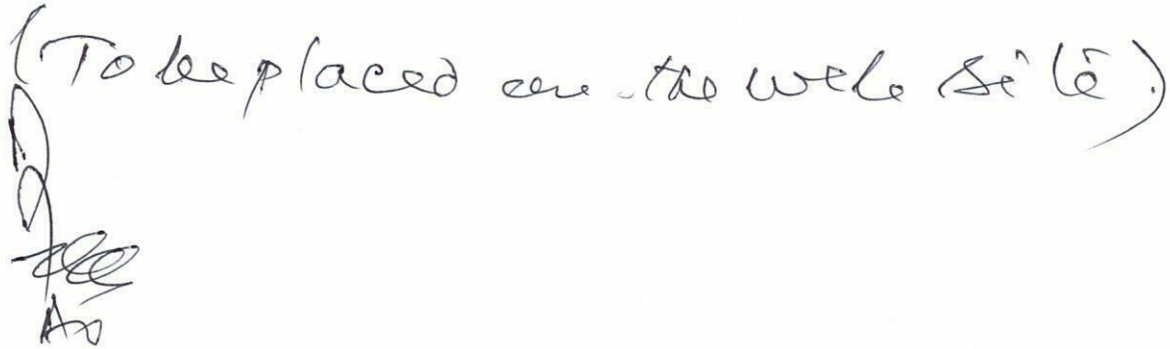 (To be placed on the web site)